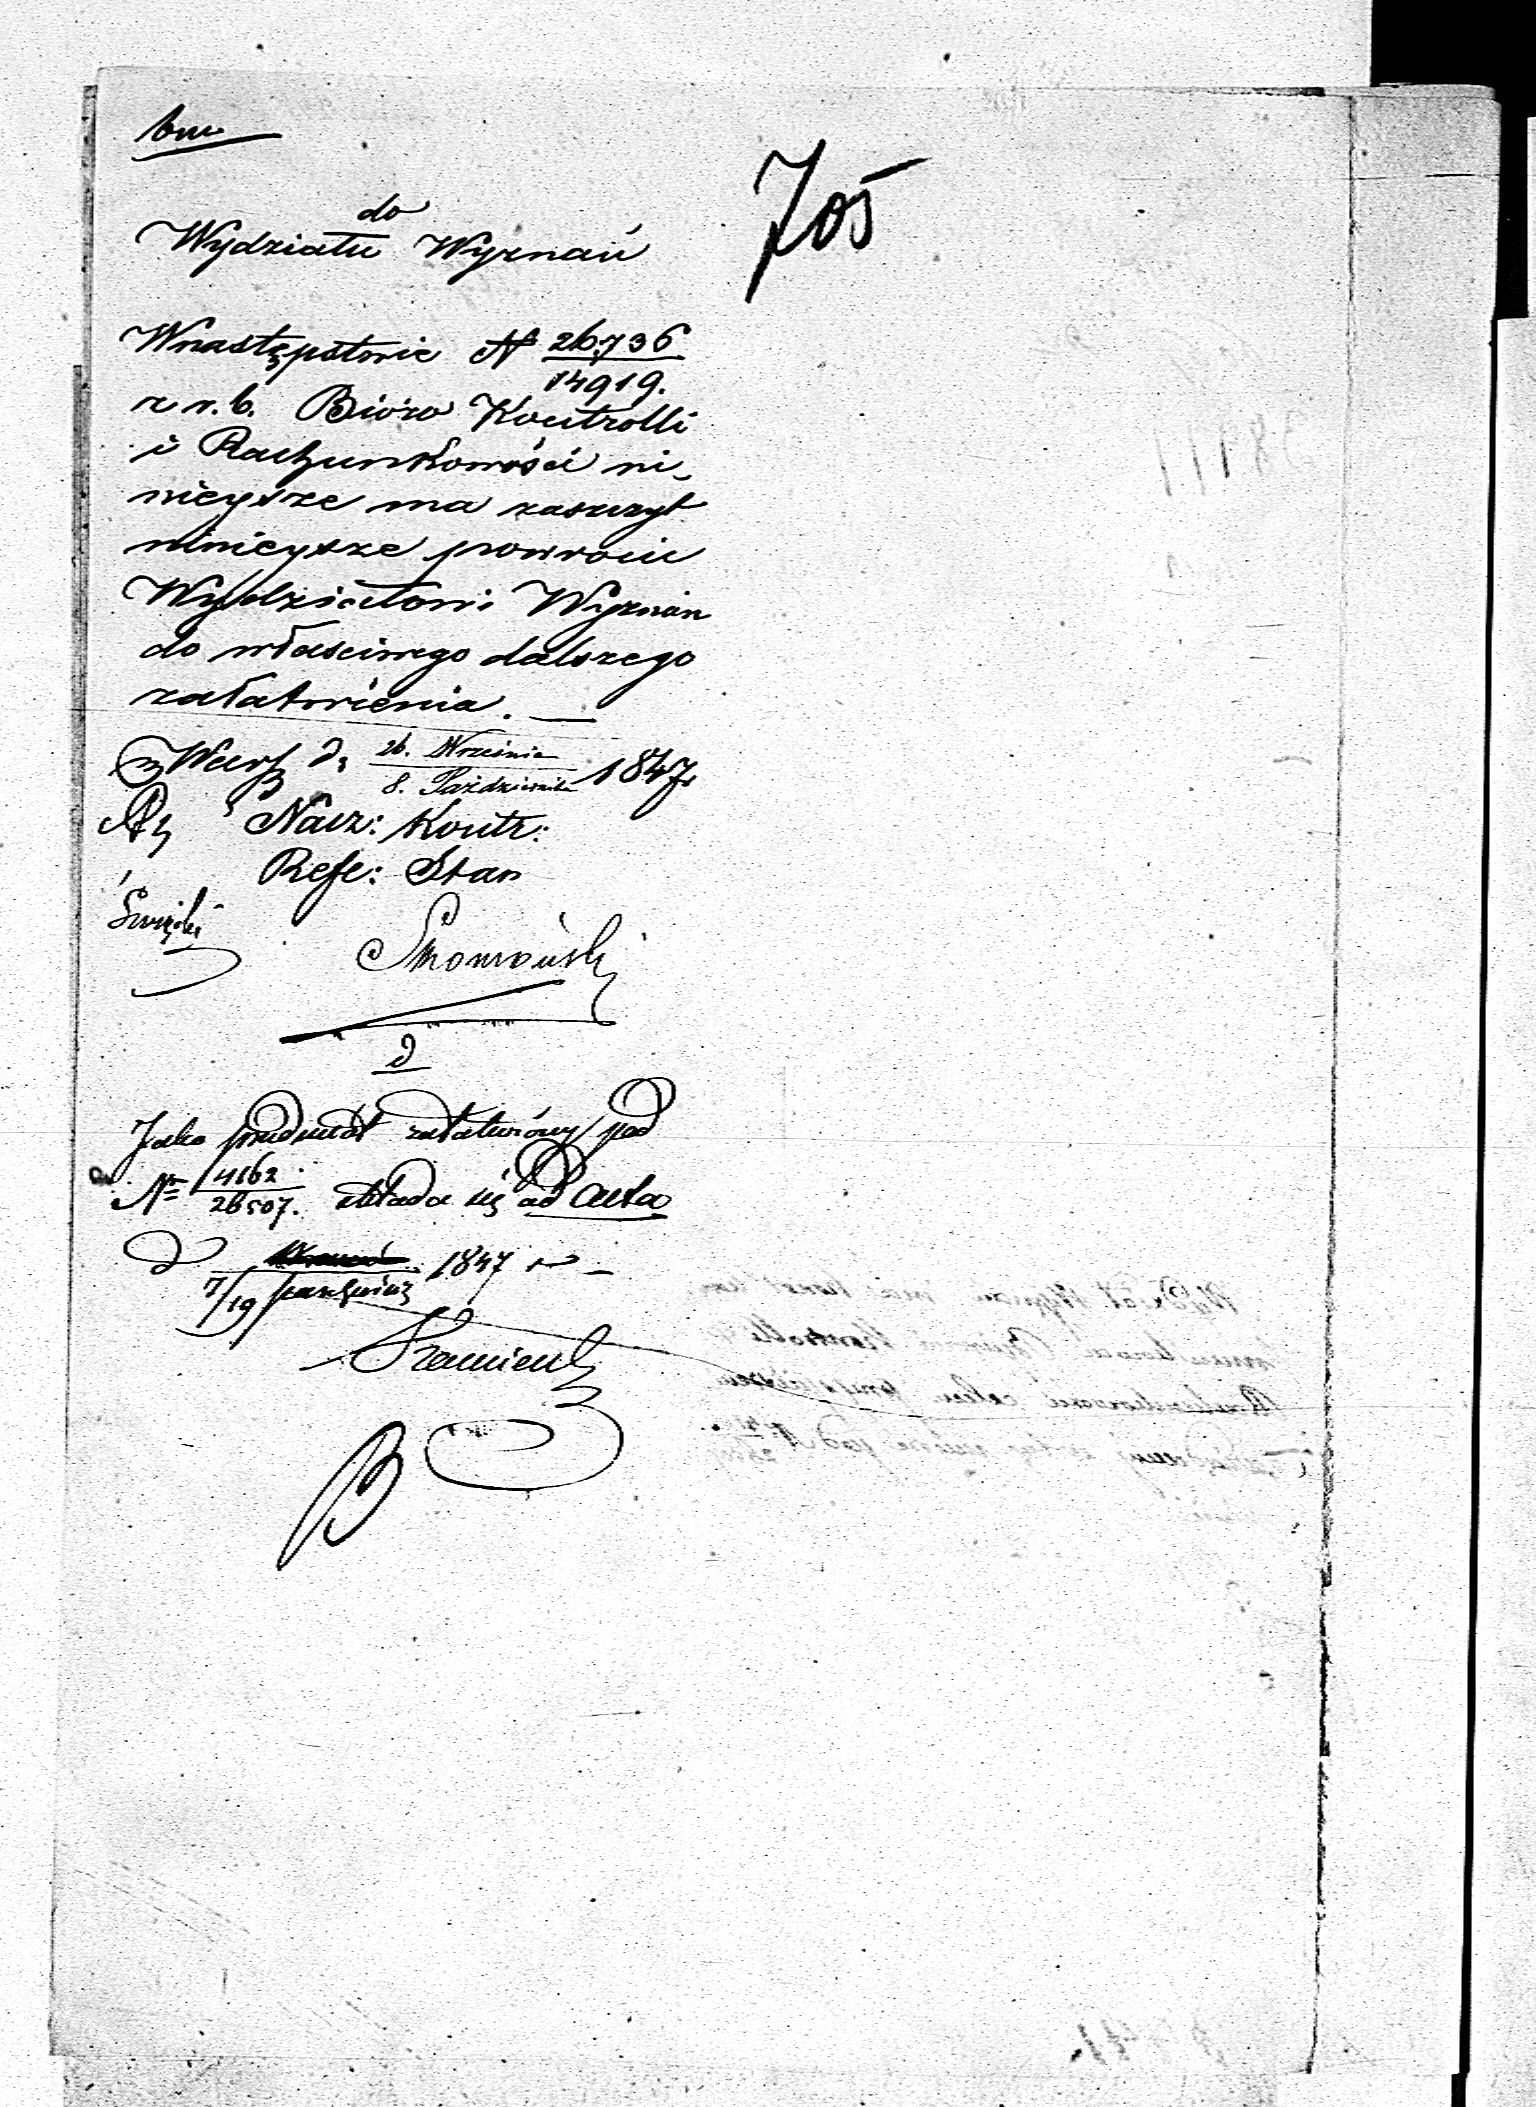 do
Wydziału Wyznań
Wnastępstwie N 26736/14919.
z r. b. Bióro Kontrolli
i Rachunkowości ni-
nieysze ma zaszczyt
ninieysze powrócić
Wydziałowi Wyznań
do właściwego dalszego
załatwienia. —
w Warsz d. 26. Września/8. Października 1847.
Nacz: Kontr:
Refe: Stan
Jako przedmiot załatwiony pod
N= 4162/26507. składa się ad acta
d 7/19 Października 1847 r –